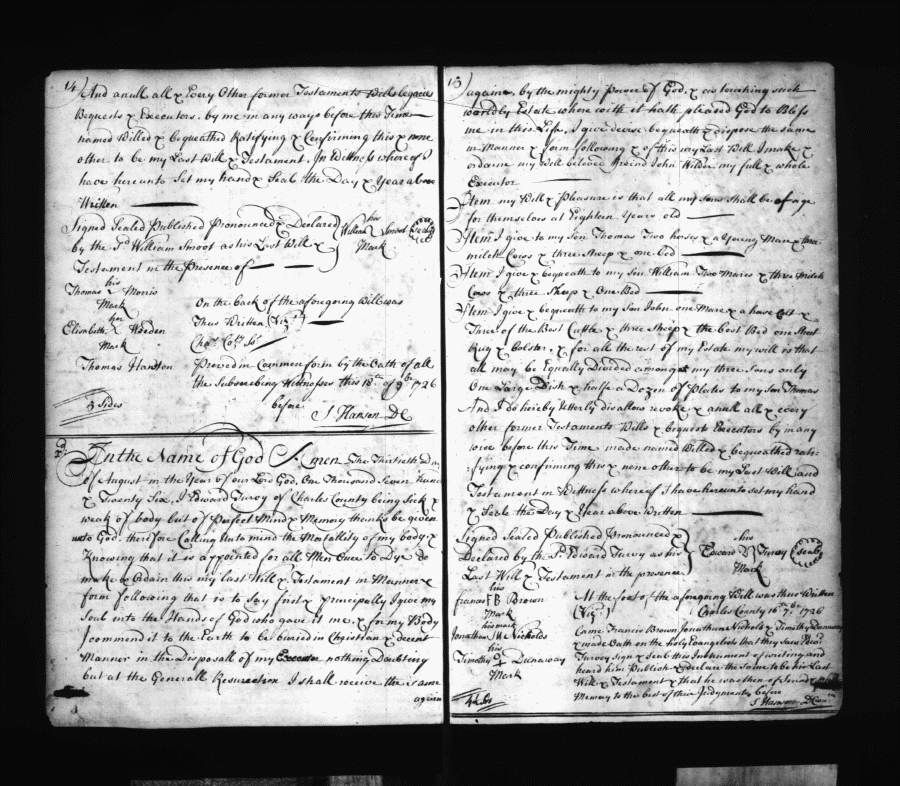 14
And anull all & Every Other former Testaments Wills legacies
Bequests & Executors by me in any ways before this Time
named Willed & bequeathed Ratifying & Confirming this & none
other to be my Last Will & Testament. In Wittness whereof I
have hereunto Set my hand & Seal the Day & Year above
Written
Signed Sealed Published Pronounced & Declared
by the Sd William Smoot as his Last Will &
Testament in the Presence of
his
William Smoot Seal
Mark
his
Thomas Morris
Mark
her
Elisabeth Worden
Mark
Thomas Hanson
On the back of the aforegoing Will was
Thus Written (Vizt)
Chas Coty Sst
Proved in Common form by the Oath of all
the Subscribing Witnesses this 18th of 9br 1726
before
S Hanson DC
3 Sides
In the Name of God Amen The Thirtieth Day
of August in the Year of our Lord God, One Thousand Seven Hund
& Twenty Six, I Edward Turvy of Charles County being Sick &
weak of body but of Perfect Mind & Memory thanks be given
unto God. therefore Calling Unto mind the Mortallity of my body &
Knowing that it is appointed for all Men Once To Dye do
make & Ordain this my last Will & Testament in Manner &
form following that is to Say first & principally I give my
Soul into the Hands of God who gave it me & for my Body
I commend it to the Earth to be buried in Christian & decent
Manner in the Disposall of my Executor nothing Doubting
but at the Generall Resurrection I shall receive the same
again
15
againe, by the mighty Power of God, & as touching such
worldly Estate where with it hath pleased God to Bless
me in this Life, I give devise bequeath & dispose the same
in Manner & form following & of this my Last Will I make &
ordaine my Well beloved friend John Wilder my full & whole
Executor
Item my Will & Pleasure is that all my Sons shall be of age
for themselves at Eighteen Years old
Item I give to my Son Thomas Two horses & a Young Mare & three
milch Cows & three Sheep & one Bed
Item I give & bequeath to my Son William Two Mares & three Milch
Cows & three Sheep & One Bed
Item I give & bequeath to my Son John one Mare & a horse Colt &
Three of the Best Cattle & three Sheep & the best Bed one Sheet
Rug & bolster, & for all the rest of my Estate my will is that
all may be Equally Divided amongst my three Sons only
One Large Dish & half a Dozen of Plates to my Son Thomas
And I do hereby Utterly disallow revoke & anull all & every
other former Testaments Wills & bequest Executors by in any
wise before this Time made named Willed & bequeathed rati-
fying & confirming this & none other to be my Last Will and
Testament in Wittness whereof I have hereunto set my hand
& Seale the Day & Year above Written
Signed Sealed Published Pronounced &
Declared by the Sd Edward Turvy as his
Last Will & Testament in the presence
his
Edward Turvy Seal
Mark
his
Francis FB Brown
Mark
his mark
Jonathon Nicholds
his
Timothy Dunaway
Mark
At the foot of the aforegoing Will was thus Written
(Vizt) Charles County 16th 7br 1726
Came Francis Brown Jonathan Nichols & Timothy Dunaway
& made Oath on the holy Evangelists that they saw Edwd
Turvey Sign & Seal this Instrument of writing and
heard him Publish & Declare the same to be his Last
Will & Testament & that he was then of Sound
Memory to the best of their Judgments before
S Hanson D Com